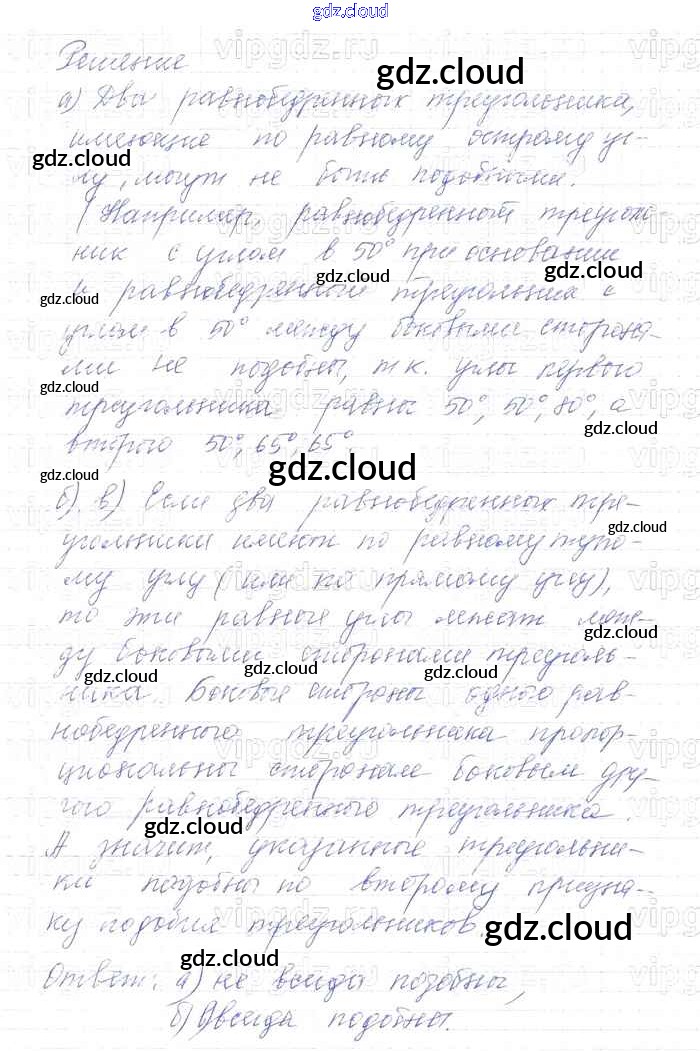 gdz.cloud
Решение
gdz.cloud
а) Два равнобедренных треугольника,
имеющие по равному острому уг-
gdz.cloud
лу, могут не быть подобными.
Например, равнобедренный треуголь-
ник с углом в 50° при основании
gdz.cloud gdz.cloud
и равнобедренный треугольник с
gdz.cloud
углом в 50° между боковыми сторона-
ми не подобны, т.к. углы первого
gdz.cloud
треугольника равны 50°, 50°, 80°, а
gdz.cloud
второго 50°, 65°, 65°.
gdz.cloud gdz.cloud
б), в) Если два равнобедренных тре-
gdz.cloud
угольники имеют по равному тупо-
му углу (или по прямому углу),
то эти равные углы лежат меж-
gdz.cloud
ду боковыми сторонами треуголь-
gdz.cloud gdz.cloud gdz.cloud
ника. Боковые стороны одного рав-
нобедренного треугольника пропор-
циональны сторонам боковым дру-
гого равнобедренного треугольника.
gdz.cloud
А значит, указанные треугольни-
ки подобны по второму призна-
ку подобия треугольников.
gdz.cloud
gdz.cloud
Ответ: а) не всегда подобны,
б) в) всегда подобны.